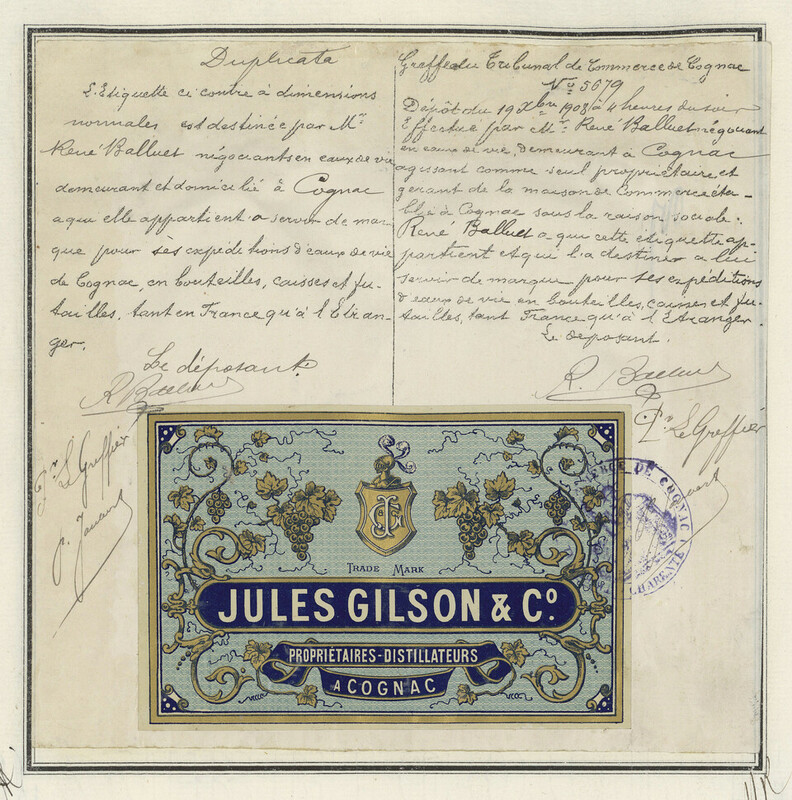 Duplicata
L'Etiquette ci contre à dimensions
normales est destinée par Mr
René Balluet négociants en eaux de vie
demeurant et domicilié à Cognac
a qui elle appartient a servir de mar-
que pour ses expéditions d'eaux de vie
de Cognac, en bouteilles, caisses et fu-
tailles, tant en France qu'à l'Etran-
ger.
Le déposant.
R. Balluet
Pr Le Greffier
Greffe du Tribunal de Commerce de Cognac
No 5679
Dépôt du 19 Xbre 1908 à 4 heures du soir
Effectué par Mr René Balluet négociant
en eaux de vie, demeurant à Cognac
agissant comme seul propriétaire et
gérant de la maison de Commerce éta-
blie à Cognac sous la raison sociale:
René Balluet a qui cette étiquette ap-
partient et qui l'a destiner a lui
servir de marque pour ses expéditions
d'eaux de vie en bouteilles, caisses et fu-
tailles, tant France qu'à l'Etranger
Le deposant.
R. Balluet
Pr Le Greffier
TRADE MARK
JULES GILSON & Co.
PROPRIÉTAIRES-DISTILLATEURS
A COGNAC
DE COGNAC
CHARENTE